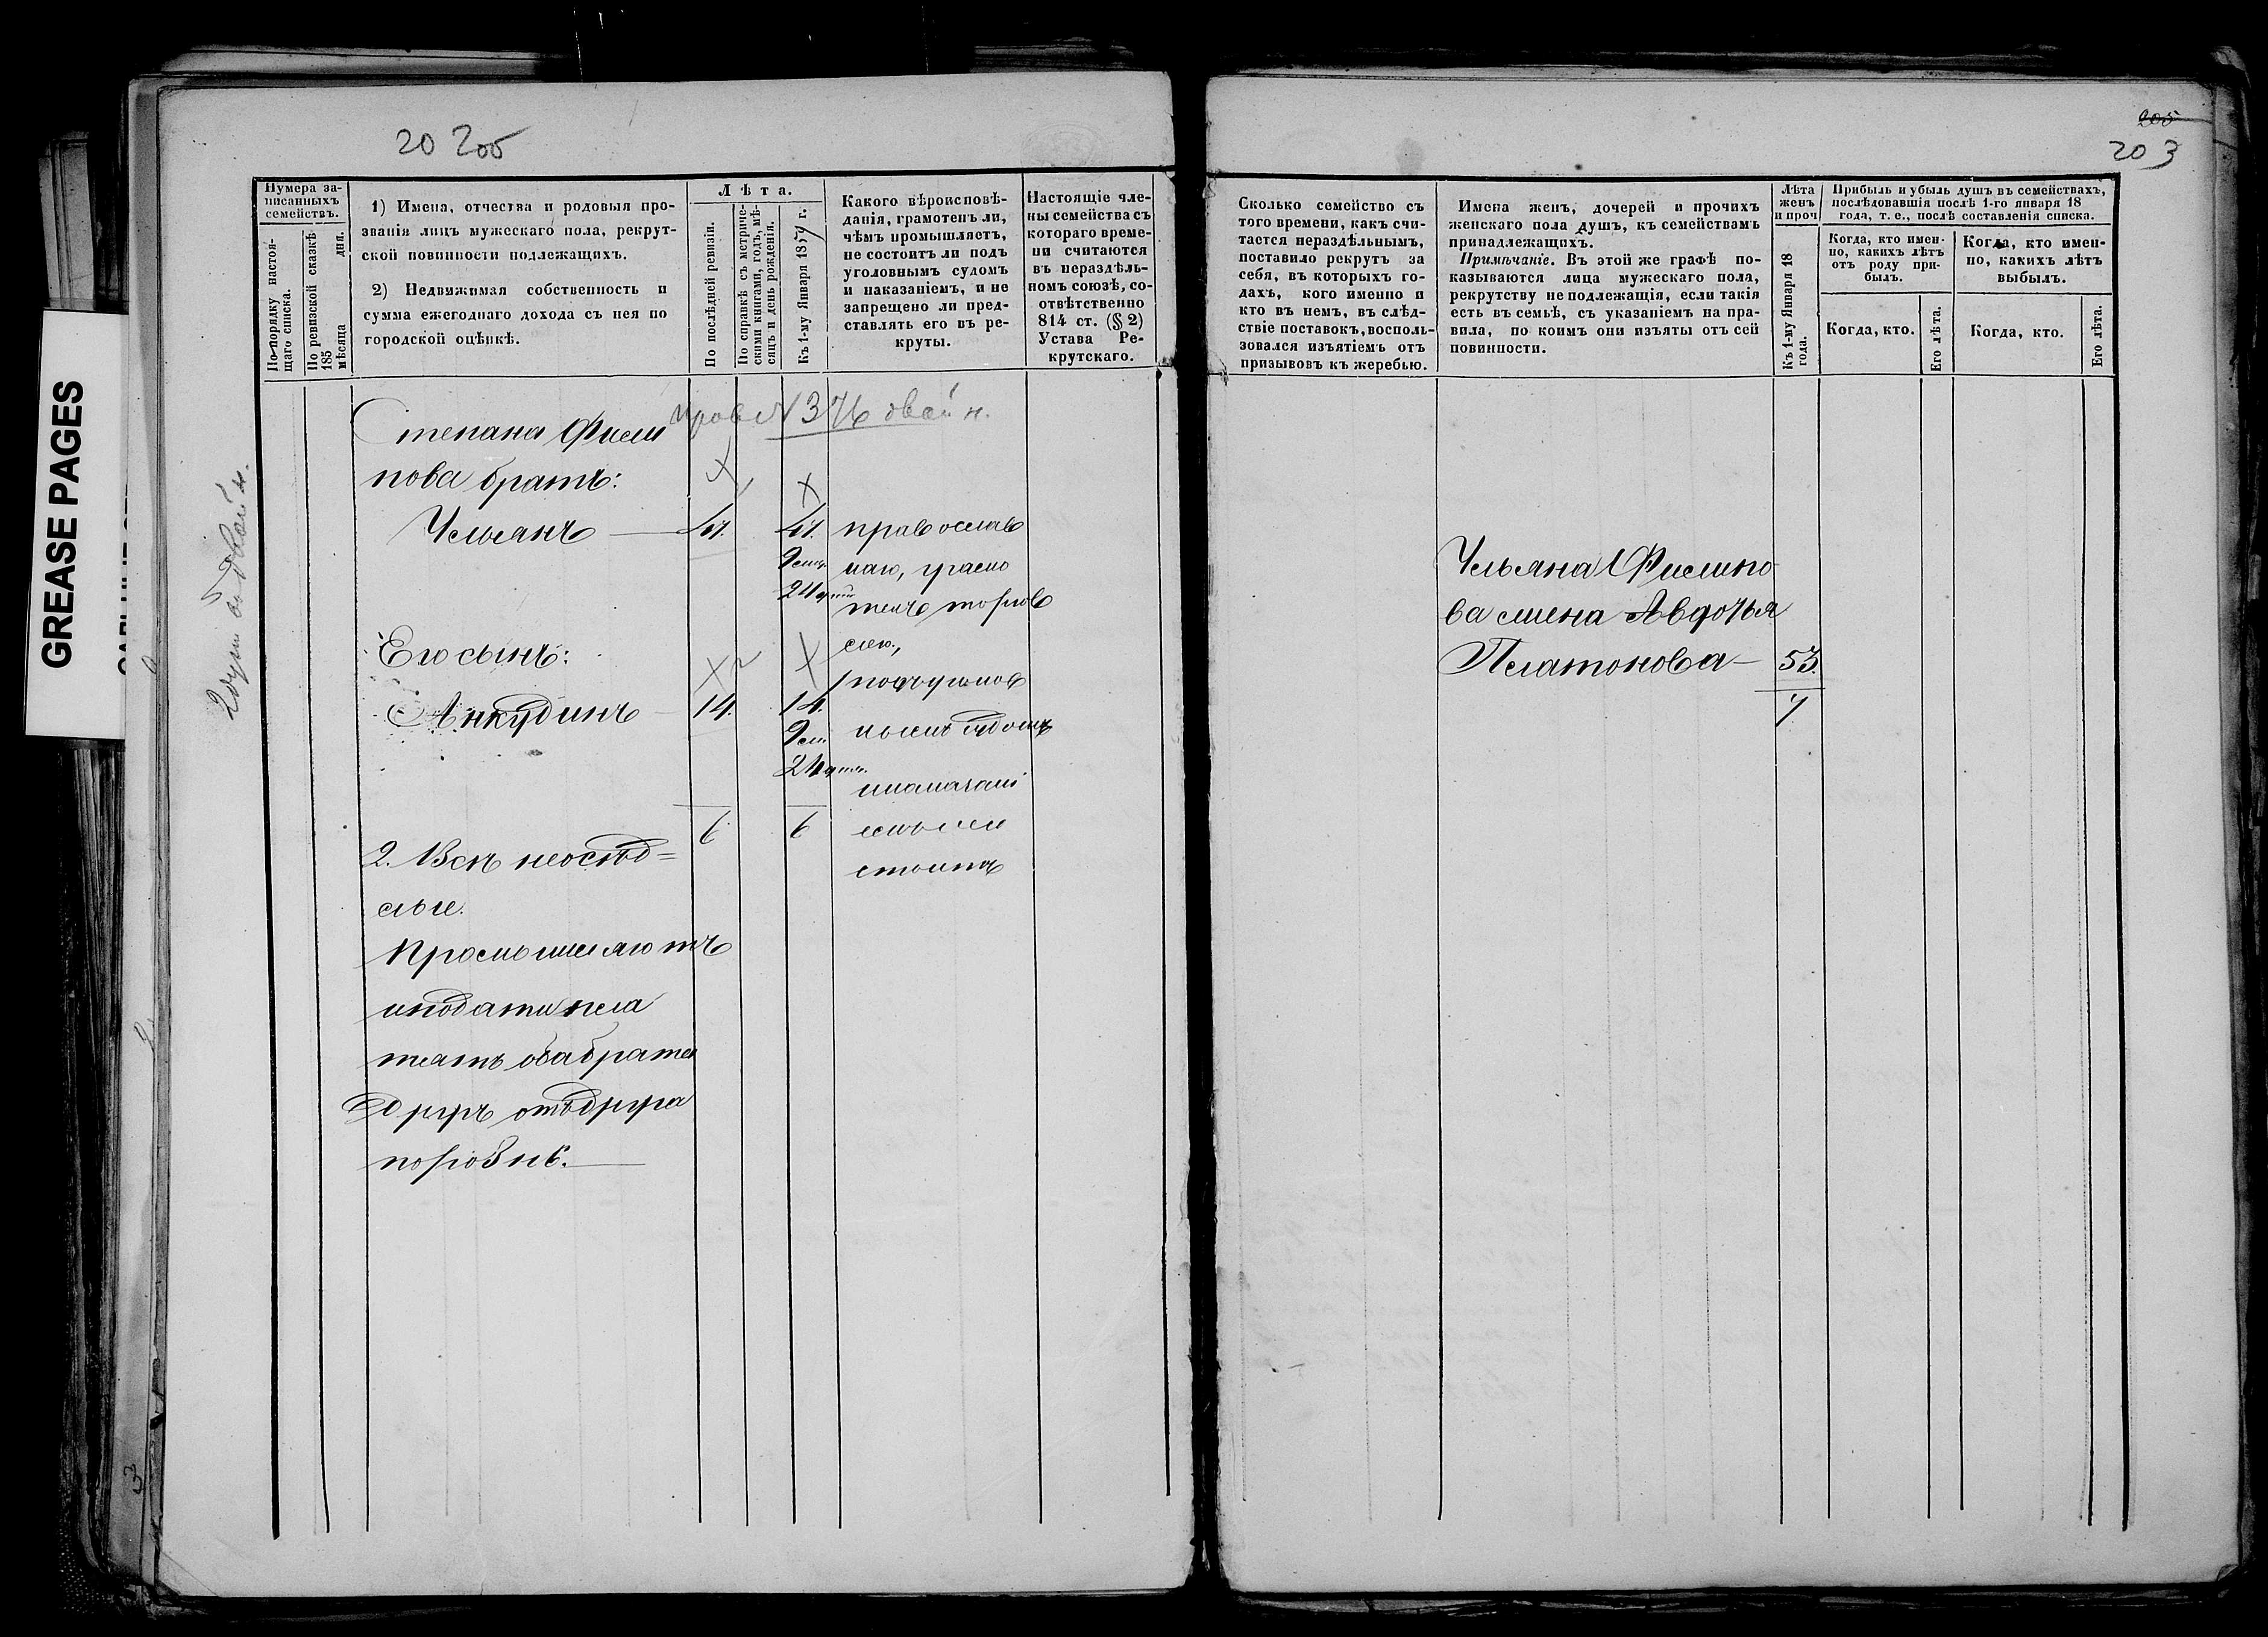 20 205
Нумера за-
писанныхъ
семействъ.
По порядку настоя-
щаго списка.
По ревизской сказкѣ
185
мѣсяца дня.
1) Имена, отчества и родовыя про-
званія лицъ мужескаго пола, рекрут-
ской повинности подлежащихъ.
2) Недвижимая собственность и
сумма ежегоднаго дохода съ нея по
городской оцѣнкѣ.
Лѣта.
По послѣдней ревизіи.
По справкѣ съ метриче-
скими книгами, годъ, мѣ-
сяцъ и день рожденія.
Къ 1-му Января 1859 г.
Какого вѣроисповѣ-
данія, грамотенъ ли,
чѣмъ промышляетъ,
не состоитъ ли подъ
уголовнымъ судомъ
и наказаніемъ, и не
запрещено ли пред-
ставлять его въ ре-
круты.
Настоящіе чле-
ны семейства съ
котораго време-
ни считаются
въ нераздѣль-
номъ союзѣ, со-
отвѣтственно
814 ст. (§ 2)
Устава Ре-
крутскаго.
Степана Фили
пова братъ:
Ульянъ
православ
наго, грамо
тенъ торгов
лею,
Его сынъ:
Анкудинъ 14. 14.
подъ уголов
нымъ судомъ
и наказані
емъ не
состоитъ
6 6
2. Всѣ неосѣд=
лые.
Промышляютъ
и подати пла
тятъ оба брата
другъ отъ друга
порознь.
GREASE PAGES
205
203
Сколько семейство съ
того времени, какъ счи-
тается нераздѣльнымъ,
поставило рекрутъ за
себя, въ которыхъ го-
дахъ, кого именно и
кто въ немъ, въ слѣд-
ствіе поставокъ, восполь-
зовался изъятіемъ отъ
призывовъ къ жеребью.
Имена женъ, дочерей и прочихъ
женскаго пола душъ, къ семействамъ
принадлежащихъ.
Примѣчаніе. Въ этой же графѣ по-
казываются лица мужескаго пола,
рекрутству не подлежащія, если такія
есть въ семьѣ, съ указаніемъ на пра-
вила, по коимъ они изъяты отъ сей
повинности.
Лѣта
женъ
и проч
Къ 1-му Января 18
года.
Прибыль и убыль душъ въ семействахъ,
послѣдовавшія послѣ 1-го января 18
года, т. е., послѣ составленія списка.
Когда, кто имен-
но, какихъ лѣтъ
отъ роду при-
былъ.
Когда, кто имен-
но, какихъ лѣтъ
выбылъ.
Когда, кто.
Его лѣта.
Когда, кто.
Его лѣта.
Ульяна Филипо-
ва жена Авдотья
Платонова 53.
7